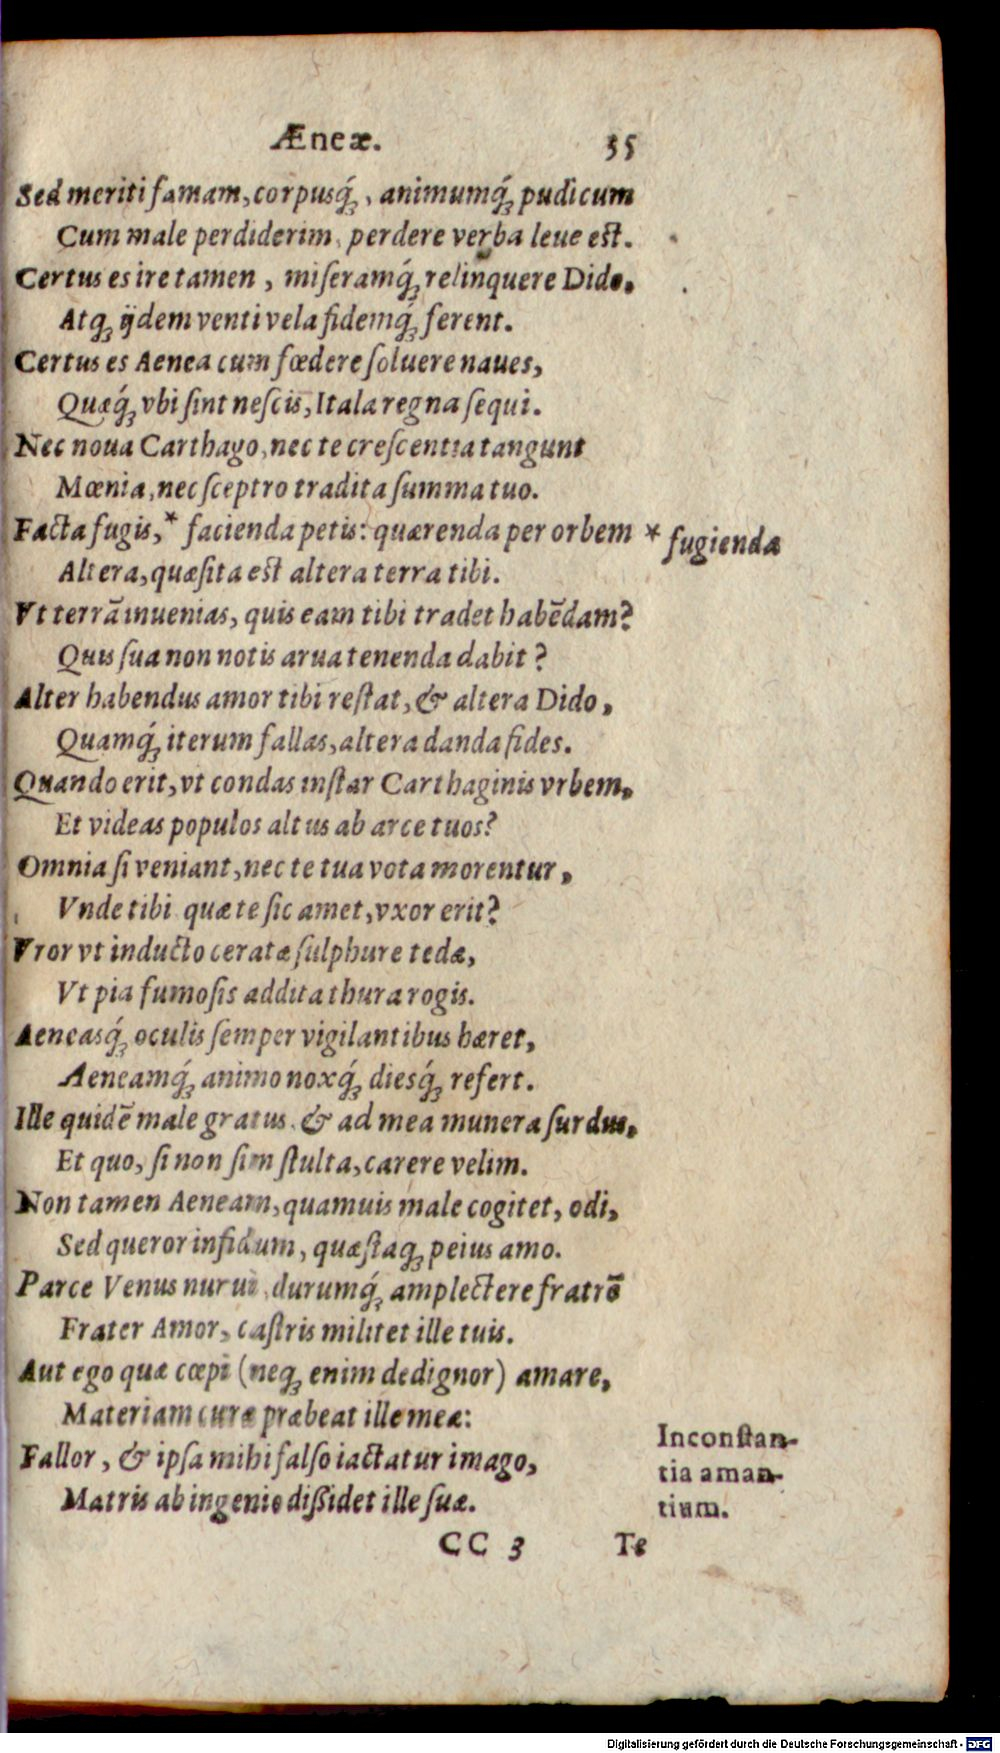 Æneæ. 35
Sed meriti famam, corpusq́ꝫ, animumq́ꝫ pudicum
Cum male perdiderim, perdere verba leue est.
Certus es ire tamen, miſeramq́ꝫ relinquere Dido,
Atqꝫ ijdem venti vela fidemq́ꝫ ferent.
Certus es Aenea cum fœdere ſoluere naues,
Quæq́ꝫ vbi ſint neſcis, Itala regna ſequi.
Nec noua Carthago, nec te creſcentia tangunt
Mœnia, nec ſceptro tradita ſumma tuo.
Facta fugis, * facienda petis: quærenda per orbem * fugienda
Altera, quæſita est altera terra tibi.
Vt terrā inuenias, quis eam tibi tradet habēdam?
Quis ſua non notis arua tenenda dabit?
Alter habendus amor tibi reſtat, & altera Dido,
Quamq́ꝫ iterum fallas, altera danda fides.
Quando erit, vt condas inſtar Carthaginis vrbem,
Et videas populos altus ab arce tuos?
Omnia ſi veniant, nec te tua vota morentur,
Vnde tibi quæ te ſic amet, vxor erit?
Vror vt inducto ceratæ ſulphure tedæ,
Vt pia fumoſis addita thura rogis.
Aeneasq́ꝫ oculis ſemper vigilantibus hæret,
Aeneamq́ꝫ animo noxq́ꝫ diesq́ꝫ refert.
Ille quidē male gratus, & ad mea munera ſurdus,
Et quo, ſi non ſim ſtulta, carere velim.
Non tamen Aeneam, quamuis male cogitet, odi,
Sed queror infidum, quæſtaqꝫ peius amo.
Parce Venus nurui, durumq́ꝫ amplectere fratrē
Frater Amor, caſtris militet ille tuis.
Aut ego quæ cœpi (neqꝫ enim dedignor) amare,
Materiam curæ præbeat ille meæ:
Fallor, & ipſa mihi falſo iactatur imago,
Matris ab ingenio diſſidet ille ſuæ.
Inconſtan-
tia aman-
tium.
CC 3 Te
Digitalisierung gefördert durch die Deutsche Forschungsgemeinschaft - DFG